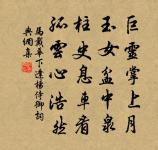 巨靈掌上月
玉女盆中泉
柱史息車看
孤雲心浩然
馬戴華下逢楊侍御詞
典網集